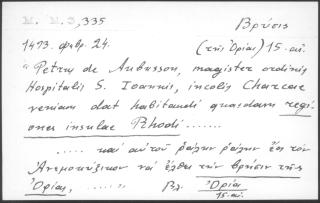 M. M. 3, 335 Βρύσις
1473. φεβρ. 24. (τῆς Ὀρίας) 15. αἰ.
"Petrus de Aubusson, magister ordinis
Hospitalis S. Ioannis, incolis Charcae
veniam dat habitandi quasdam regi
ones insulae Rhodi ......
..... καὶ αὐτοῦ ράχην ράχην ἕως τὸν
νὰ ἔλθει τὴν βρύσιν τῆς
Ὀρίας, ....." Βλ. Ὀρία
15. αἰ.